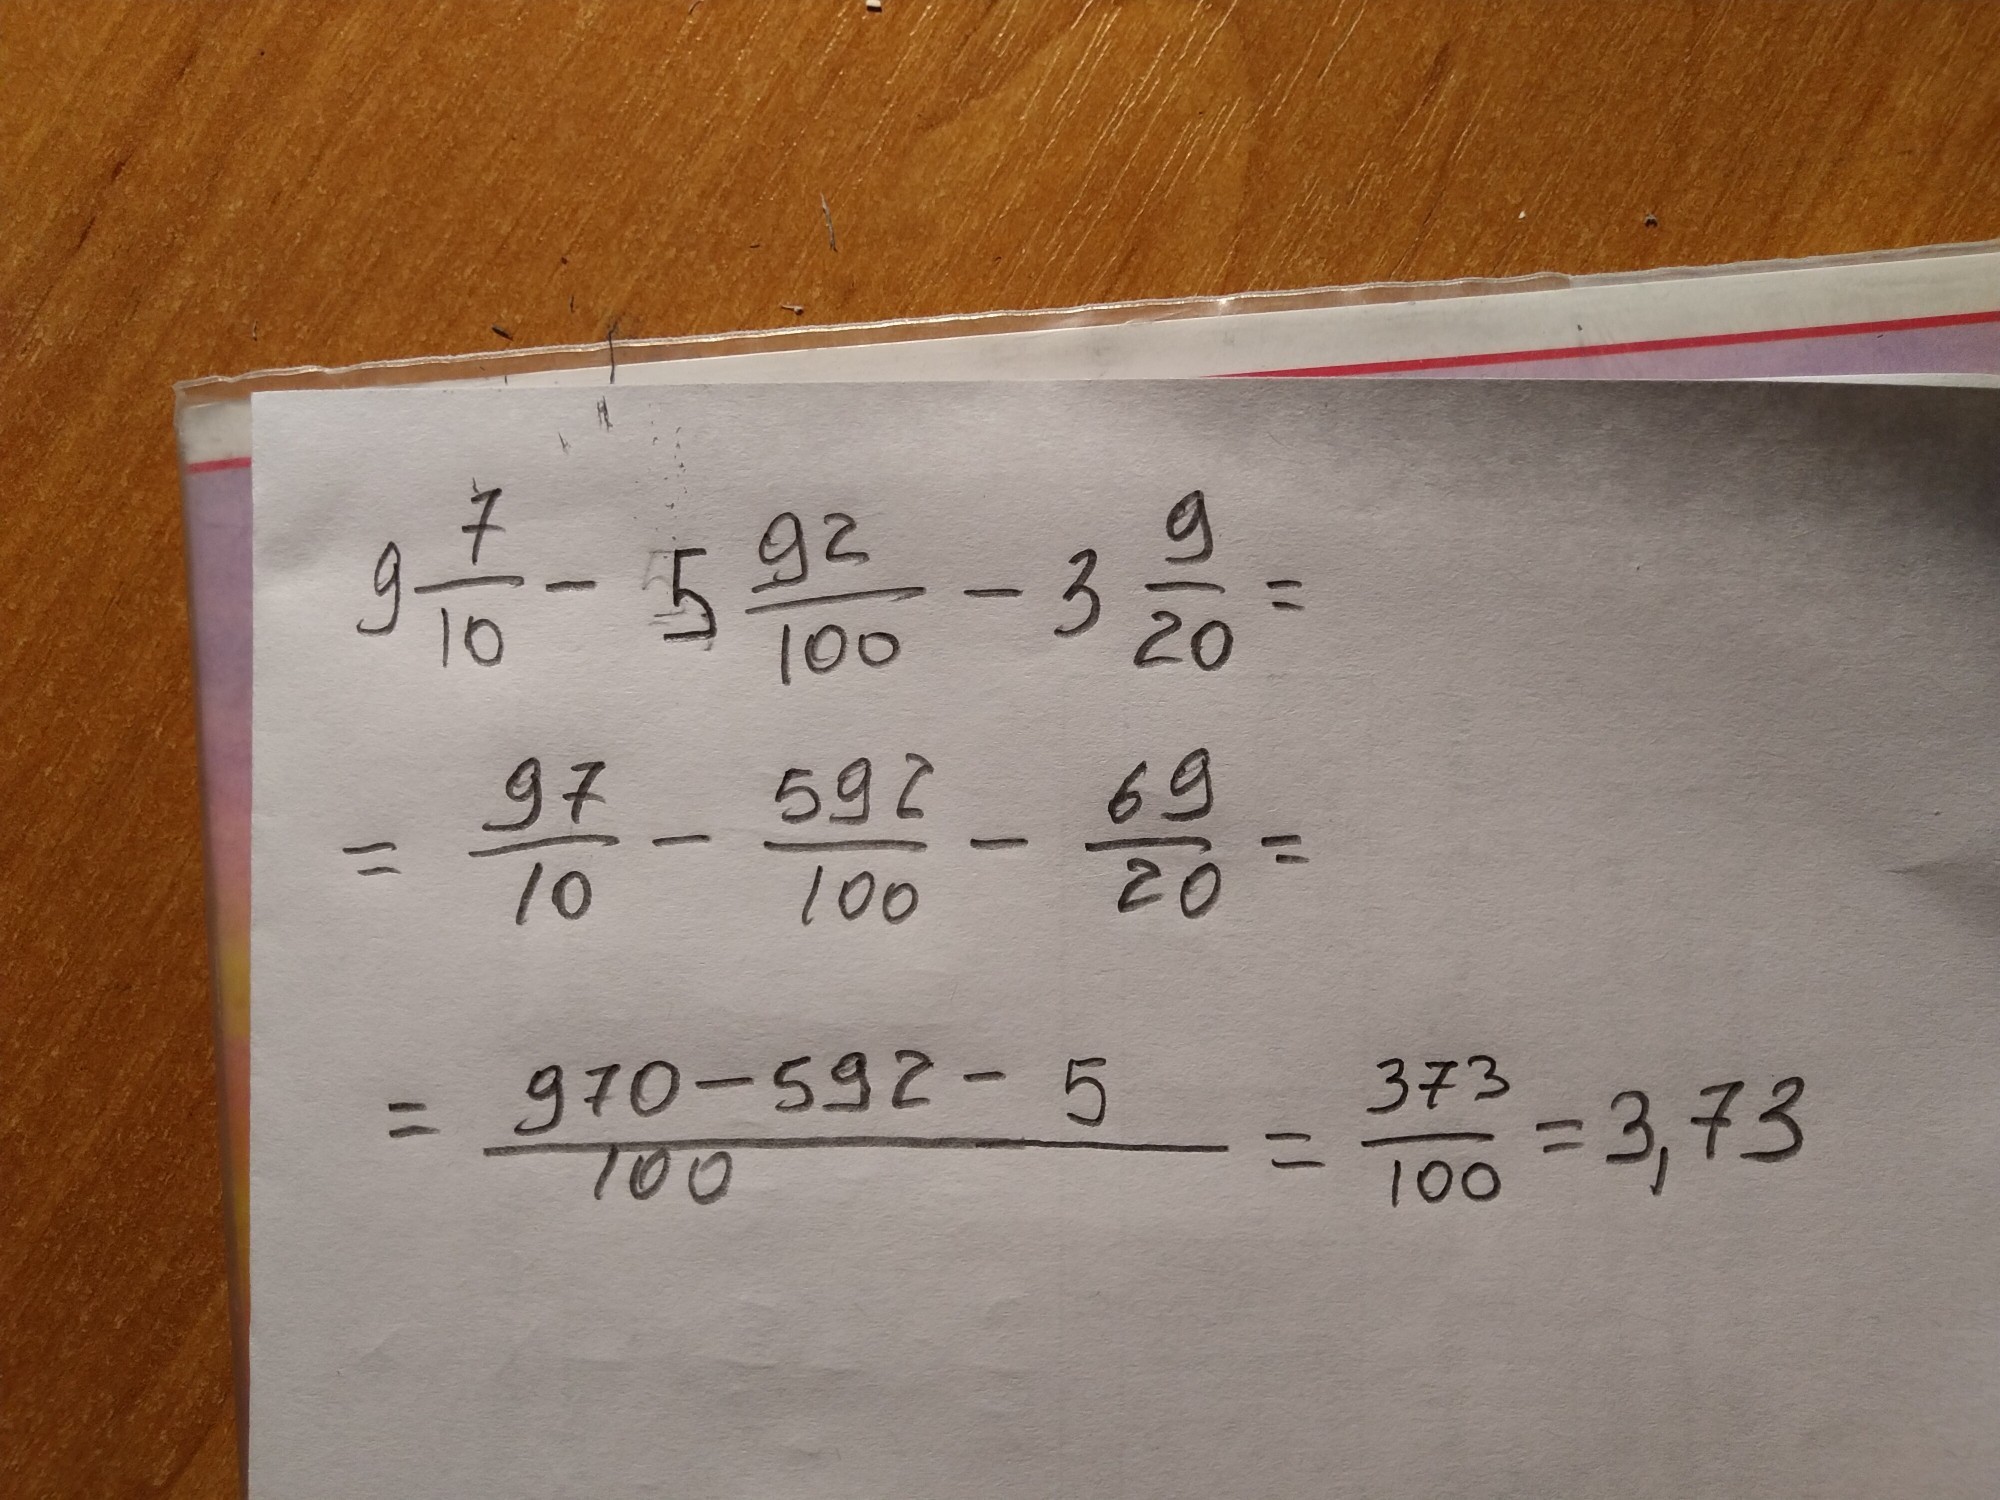 9 7/10 - 5 92/100 - 3 9/20 =
= 97/10 - 592/100 - 69/20 =
= 970 - 592 - 5/100 = 373/100 = 3,73